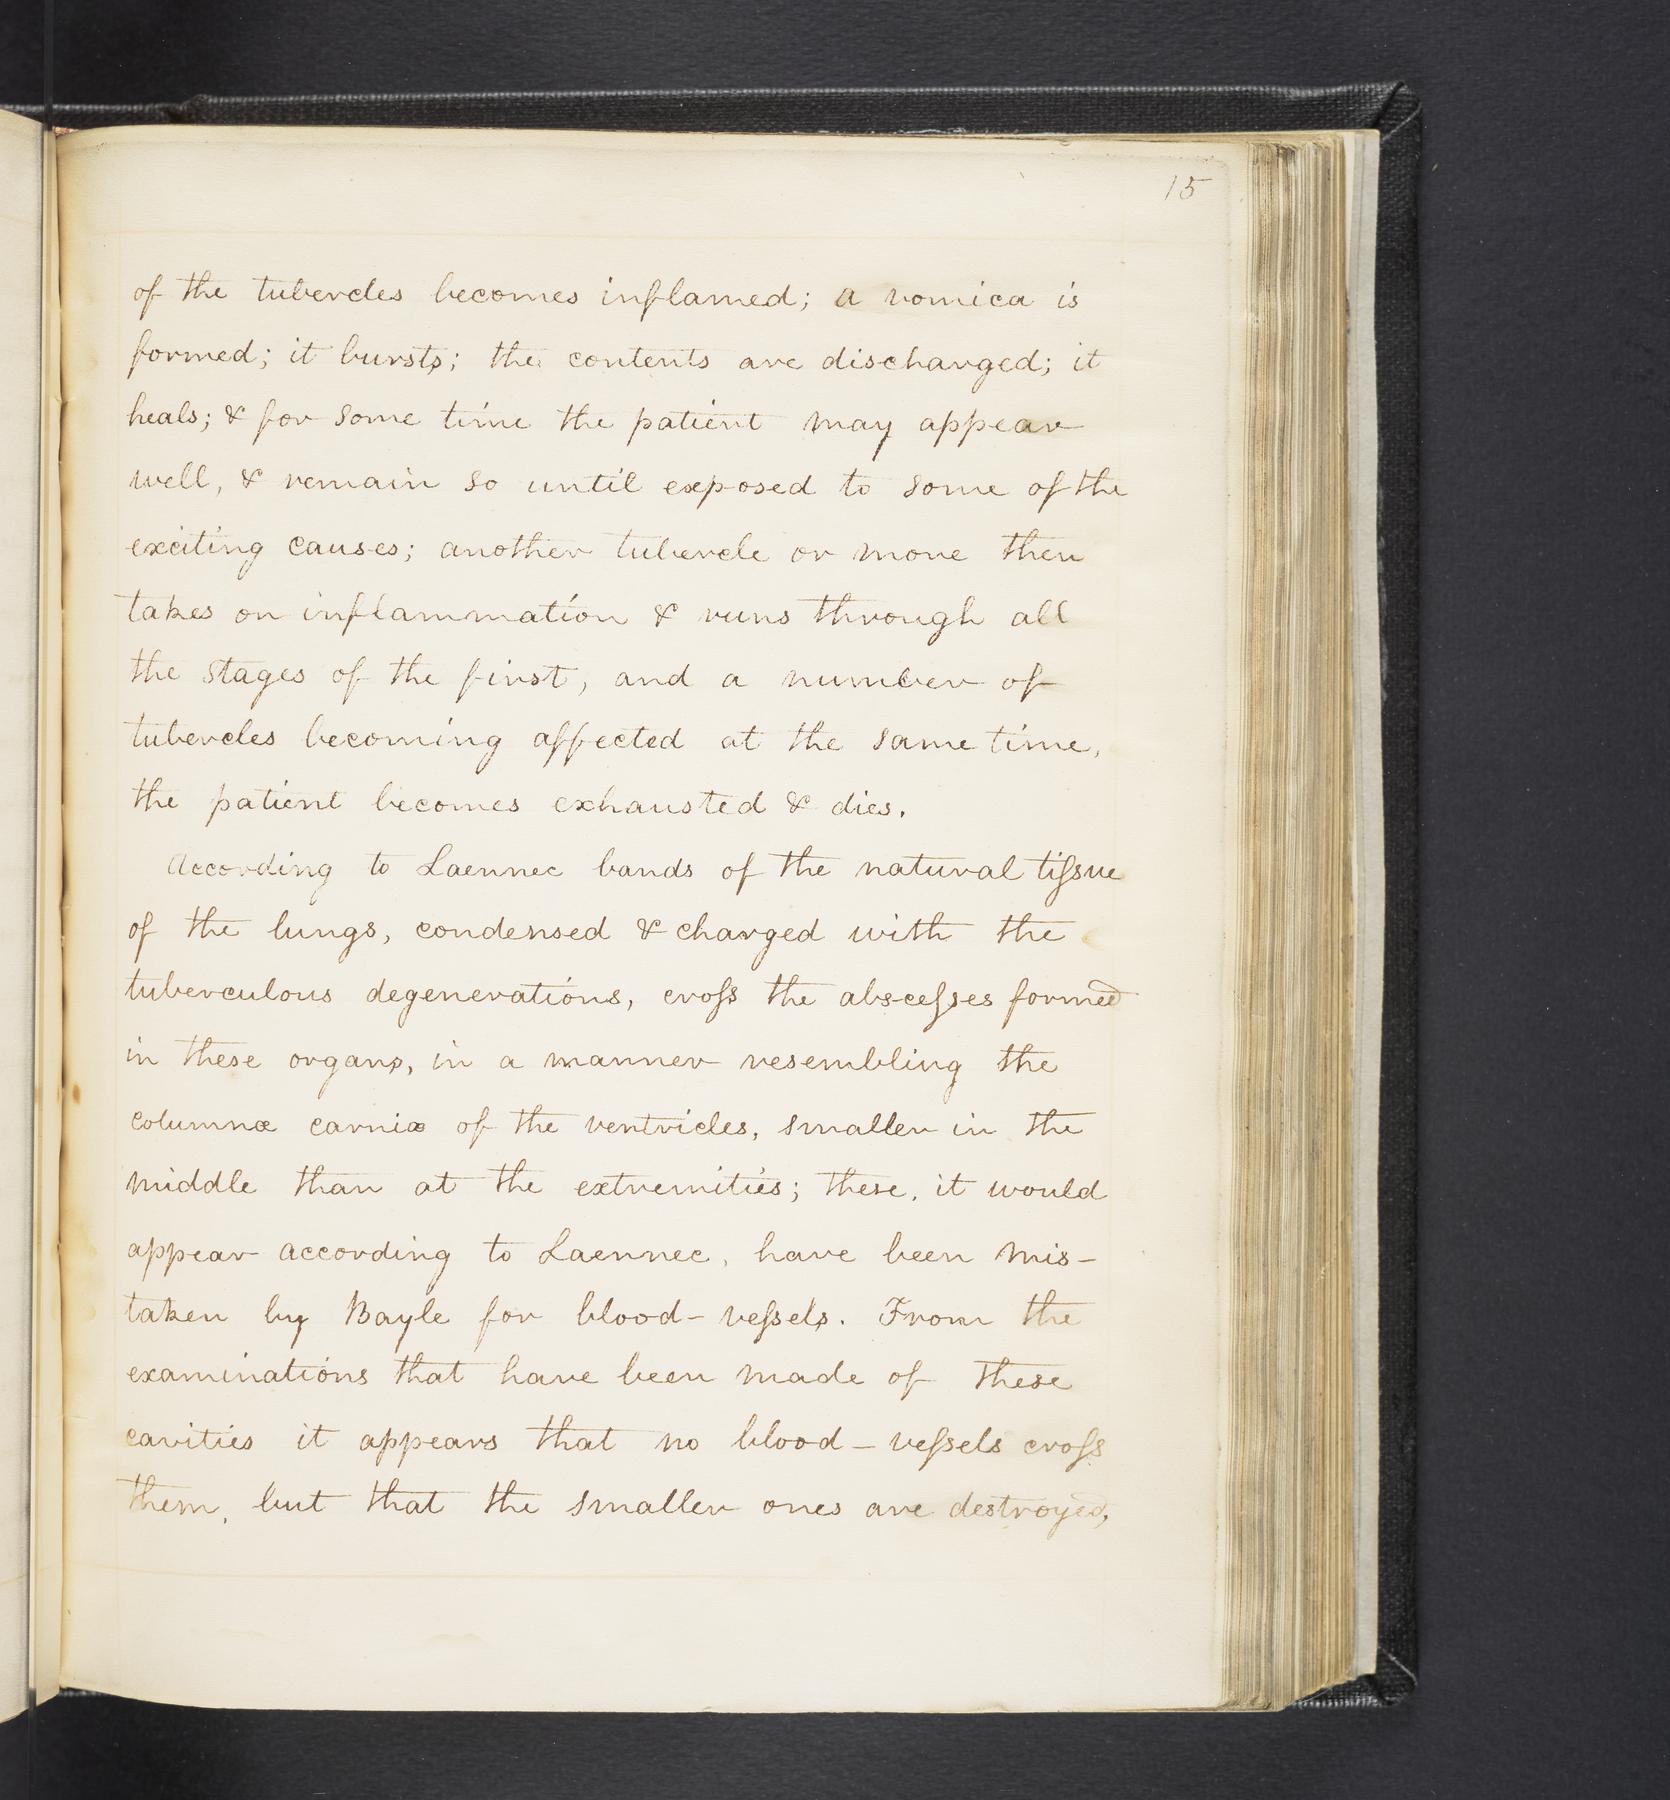 15
of the tubercles becomes inflamed; a vomica is
formed; it bursts; the contents are discharged; it
heals; & for some time the patient may appear
well, & remain so until exposed to some of the
exciting causes; another tubercle or more then
takes on inflammation & runs through all
the stages of the first, and a number of
tubercles becoming affected at the same time,
the patient becomes exhausted & dies.
According to Laennec bands of the natural tiſsue
of the lungs, condensed & charged with the
tuberculous degenerations, croſs the absceſses formed
in these organs, in a manner resembling the
columnæ carniæ of the ventricles, smaller in the
middle than at the extremities; these, it would
appear according to Laennec, have been mis-
taken by Bayle for blood-veſsels. From the
examinations that have been made of these
cavities it appears that no blood-veſsels croſs
them, but that the smaller ones are destroyed,